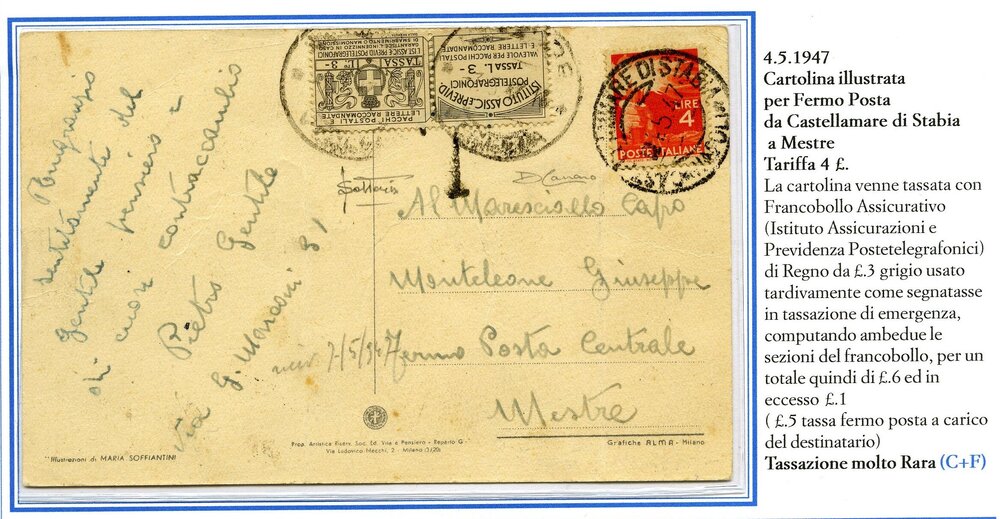 4.5.1947
Cartolina illustrata
per Fermo Posta
da Castellamare di Stabia
a Mestre
Tariffa 4 £.
La cartolina venne tassata con
Francobollo Assicurativo
(Istituto Assicurazioni e
Previdenza Postetelegrafonici)
di Regno da £.3 grigio usato
tardivamente come segnatasse
in tassazione di emergenza,
computando ambedue le
sezioni del francobollo, per un
totale quindi di £.6 ed in
eccesso £.1
( £.5 tassa fermo posta a carico
del destinatario)
Tassazione molto Rara (C+F)
PACCHI POSTALI E
LETTERE RACCOMANDATE
TASSA L. 3-
IST. ASSIC. E PREVID. POSTELEGRAFONICI
GARANTISCE L'INDENNIZZO IN CASO
DI SMARRIMENTO O MANOMISSIONI
ISTITUTO ASSIC. E PREVID.
POSTELEGRAFONICI
TASSA L. 3-
VALEVOLE PER PACCHI POSTALI
E LETTERE RACCOMANDATE
LIRE
4
POSTE ITALIANE
MARE DI STABIA
T
Ringrazio
sentitamente del
gentile pensiero e
di cuore contraccambio
Pietro Gentile
Via G. Marconi 31
Al Maresciallo Capo
Monteleone Giuseppe
Fermo Posta Centrale
Mestre
7/5/947
Prop. Artistica Riserv. Soc. Ed. Vita e Pensiero - Reparto G
Via Lodovico Necchi, 2 Milano (3/20)
Grafiche ALMA - Milano
Illustrazioni di MARIA SOFFIANTINI